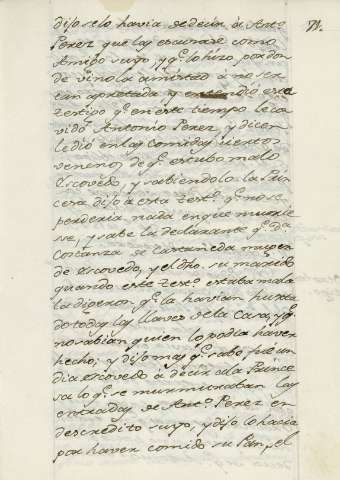 71.
dijoselo havia de decir à Antº
Perez que las escusase como
Amigo suyo, y qe lo hizo, por don
de vino la amistad à no ser
tan apretada y entendió esta
testigo qe en este tiempo le co
vidó Antonio Perez, y dicen
le dió en las comidas ciertos
venenos de qe estubo malo
Escovedo, y sabiendolo la Prin
cesa dijo à esta testº qe no se
perderia nada en que murie
se, y sabe la declarante qe Dª
Costanza de Castañeda muger
de Escovedo, y el dho. su marido
quando este testº estaba mala
la digeron qe la havian hurta
do todas las llaves de la Casa, y qe
no sabian quien lo podia haver
hecho; y dijo mas qe sabe fue un
dia Escovedo à decir a la Prince
sa lo qe se murmuraban las
entradas de Antº Perez en
descredito suyo, y dijo lo hacia
por haver comido su Pan, el